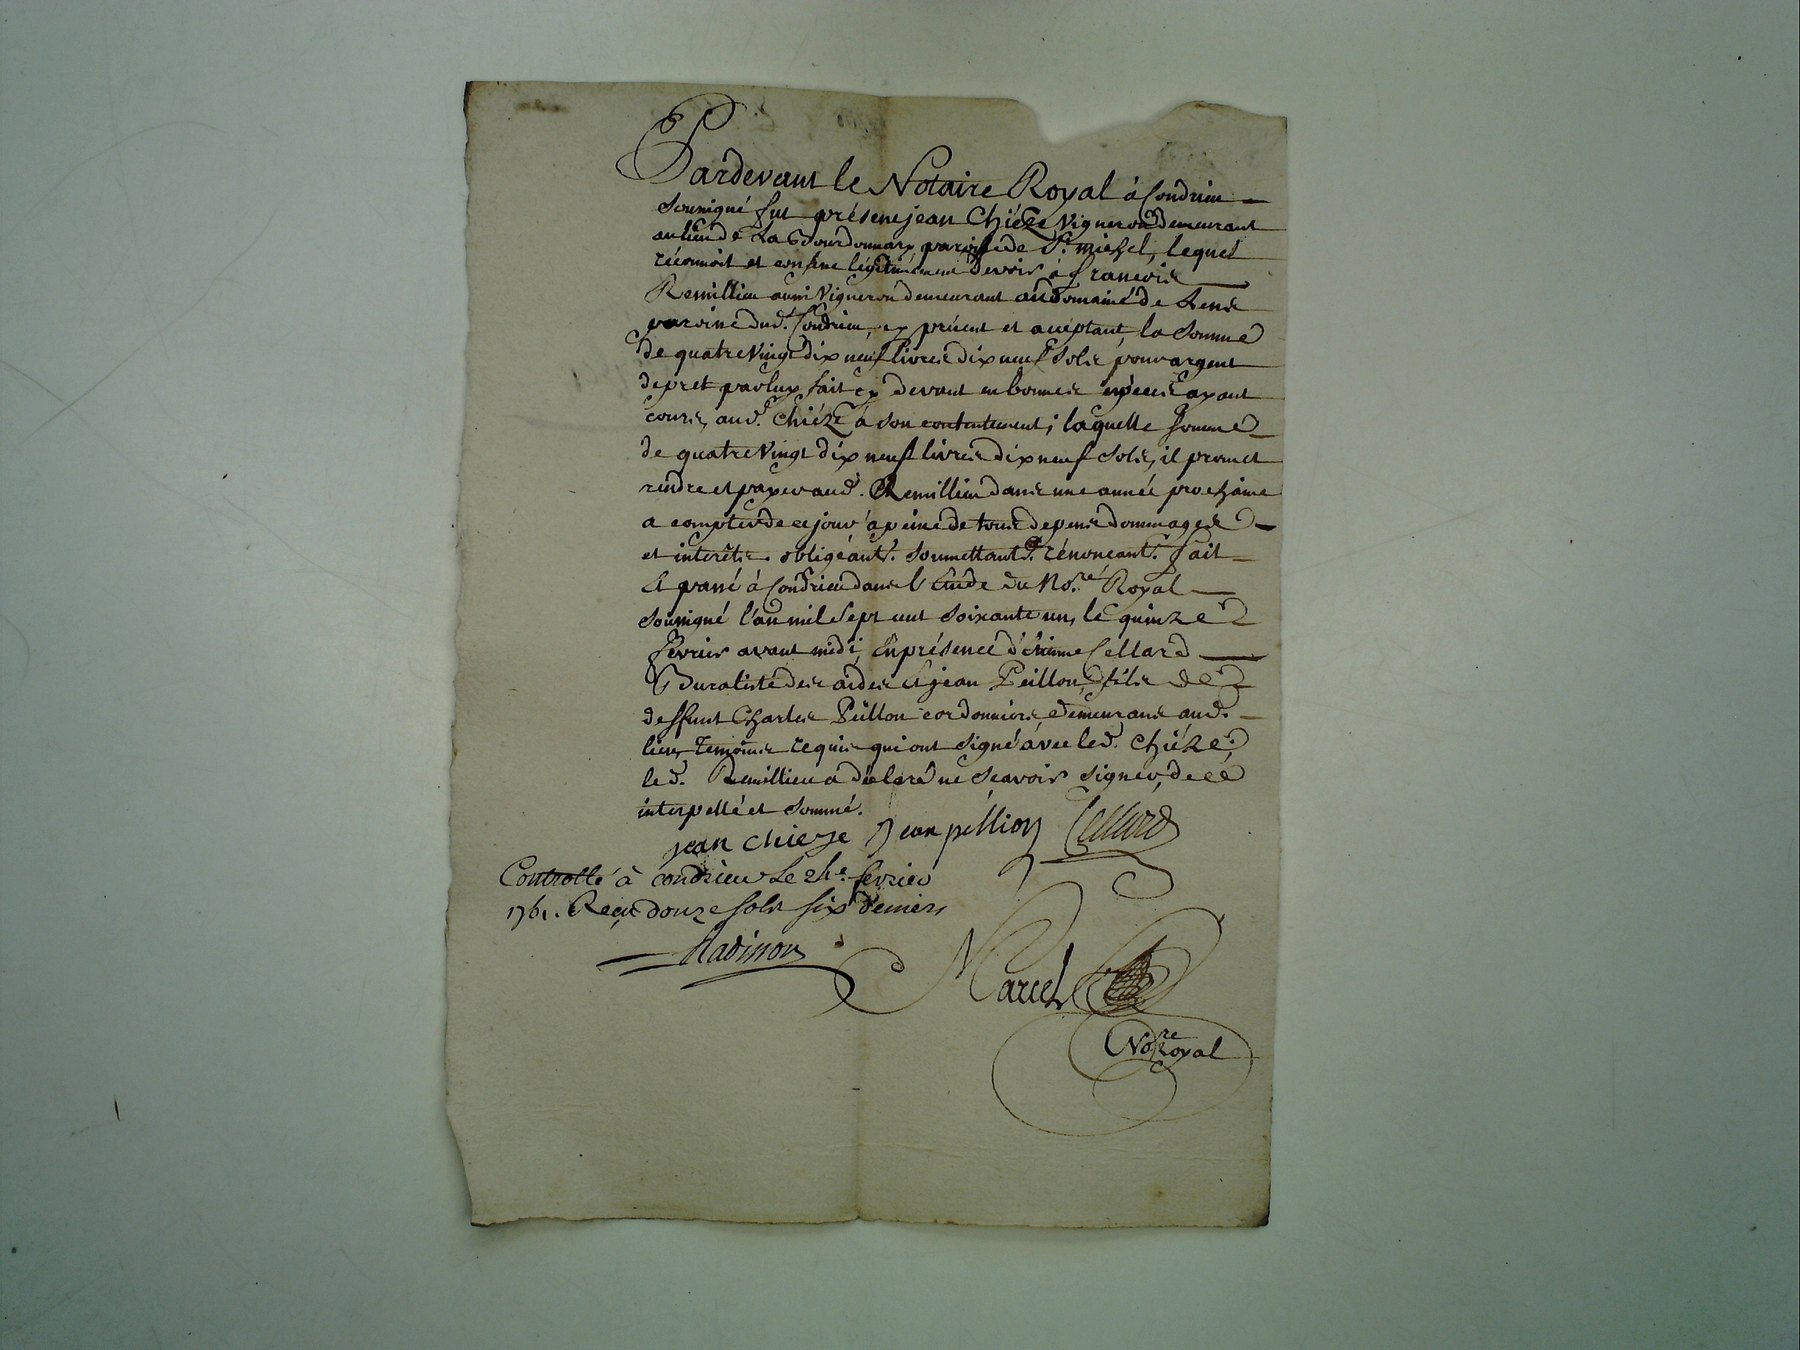 Pardevant le Notaire Royal à Condrieu
sousigné fut présent jean Chiéze vigneron demeurant
au lieu de La paroisse de St. michel, lequel
réconnoit et confesse légitimément devoir à francois
Remillieu aussi vigneron demeurant au domaine de
paroisse dud. Condrieu, cy présent et acceptant, la somme
de quatre vingt dix neuf livres dix neuf sols pour argent
de pret par luy fait cy devant en bonnes espéces ayant
cours, aud. Chiéze à son contentement; laquelle somme
de quatre vingt dix neuf livres dix neuf sols, il promet
rendre et payer aud. Remillieu dans une année prochaine
a compter de ce jour à peine de tous depens dommages
et interêts. obligéant. soumettant. rénoncant. fait
et passé à Condrieu dans l'Etude du No.re Royal
sousigné l'an mil sept cent soixante un, le quinze
février avant midi, En présence d'étienne Cellard
Buraliste des aides et jean Peillon, fils de
deffunt Charles Peillon cordonnier, demeurans aud.
lieu, temoins requis qui ont signé avec led. chiéze,
led. Remillieu a déclaré ne sçavoir signer, de cé
interpellé et sommé.
jean chieze Jean pellion Cellard
Controllé à condrieu le 24e. fevrier
1761. Reçu douze sols six deniers
Marcel
No.re Royal